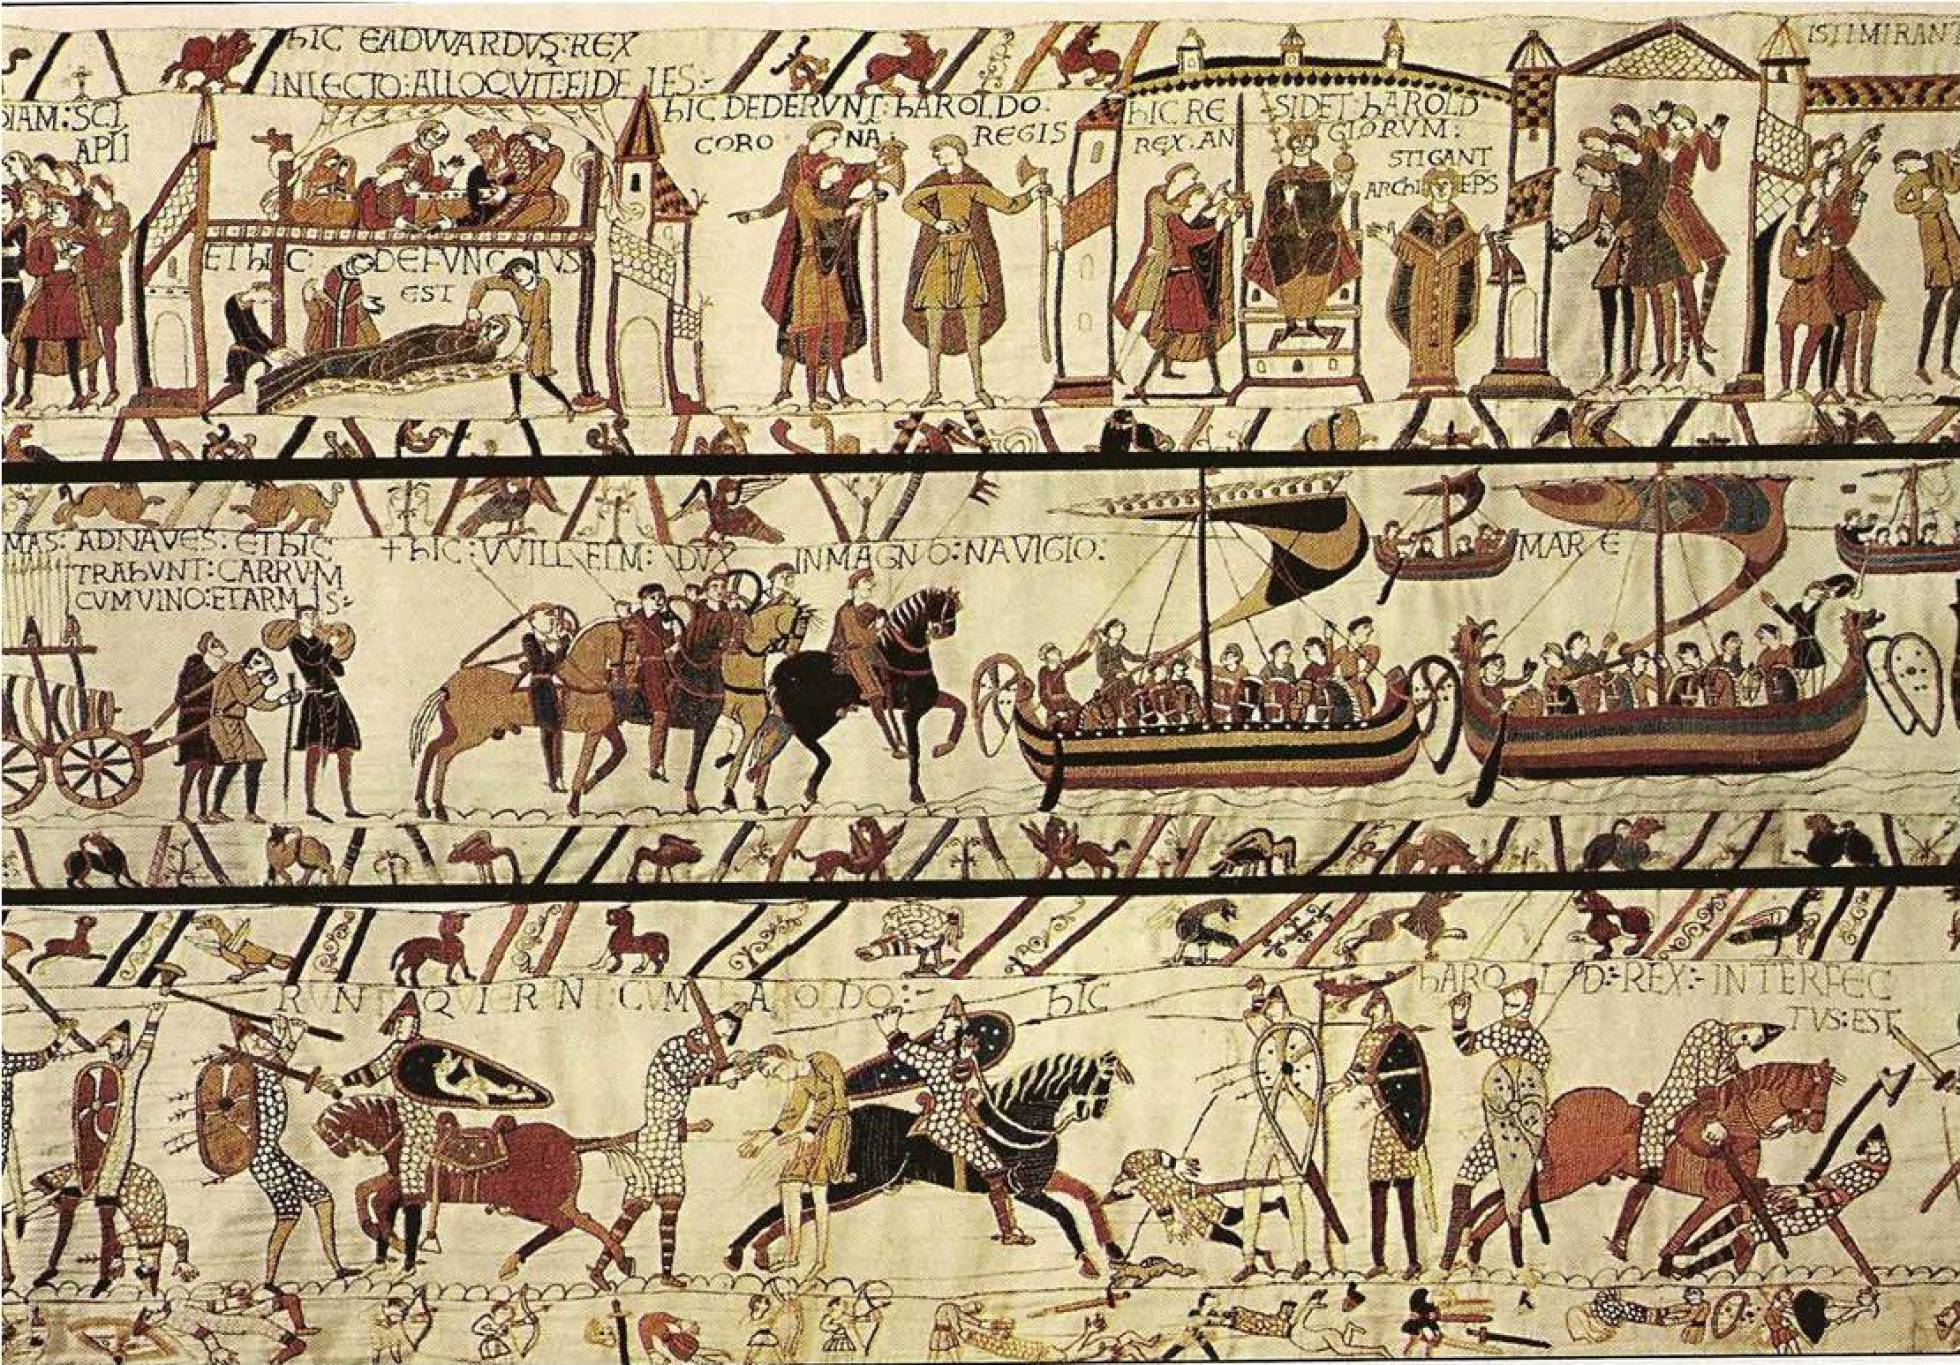 HIC EADVVARDVS:REX
INLECTO:ALLOQVIT:FIDELES:
DIAM:SCI
APII
ET hIC: DEFVNCTVS
EST
hIC DEDERVNT:hAROLDO:
CORONA REGIS
hIC RESIDET:hAROLD
REX:ANGLORVM:
STIGANT
ARChIEPS
ISTI MIRANT
MAS: ADNAVES:EThIC
TRAhVNT:CARRVM
CVMVINO:ETARMIS:
+hIC:VVILLELM:DVX INMAGNO:NAVIGIO:
MARE
RVNT QVI ERN :CVM hAROLDO:- hIC
hAROLD:REX:-INTERFEC
TVS:EST